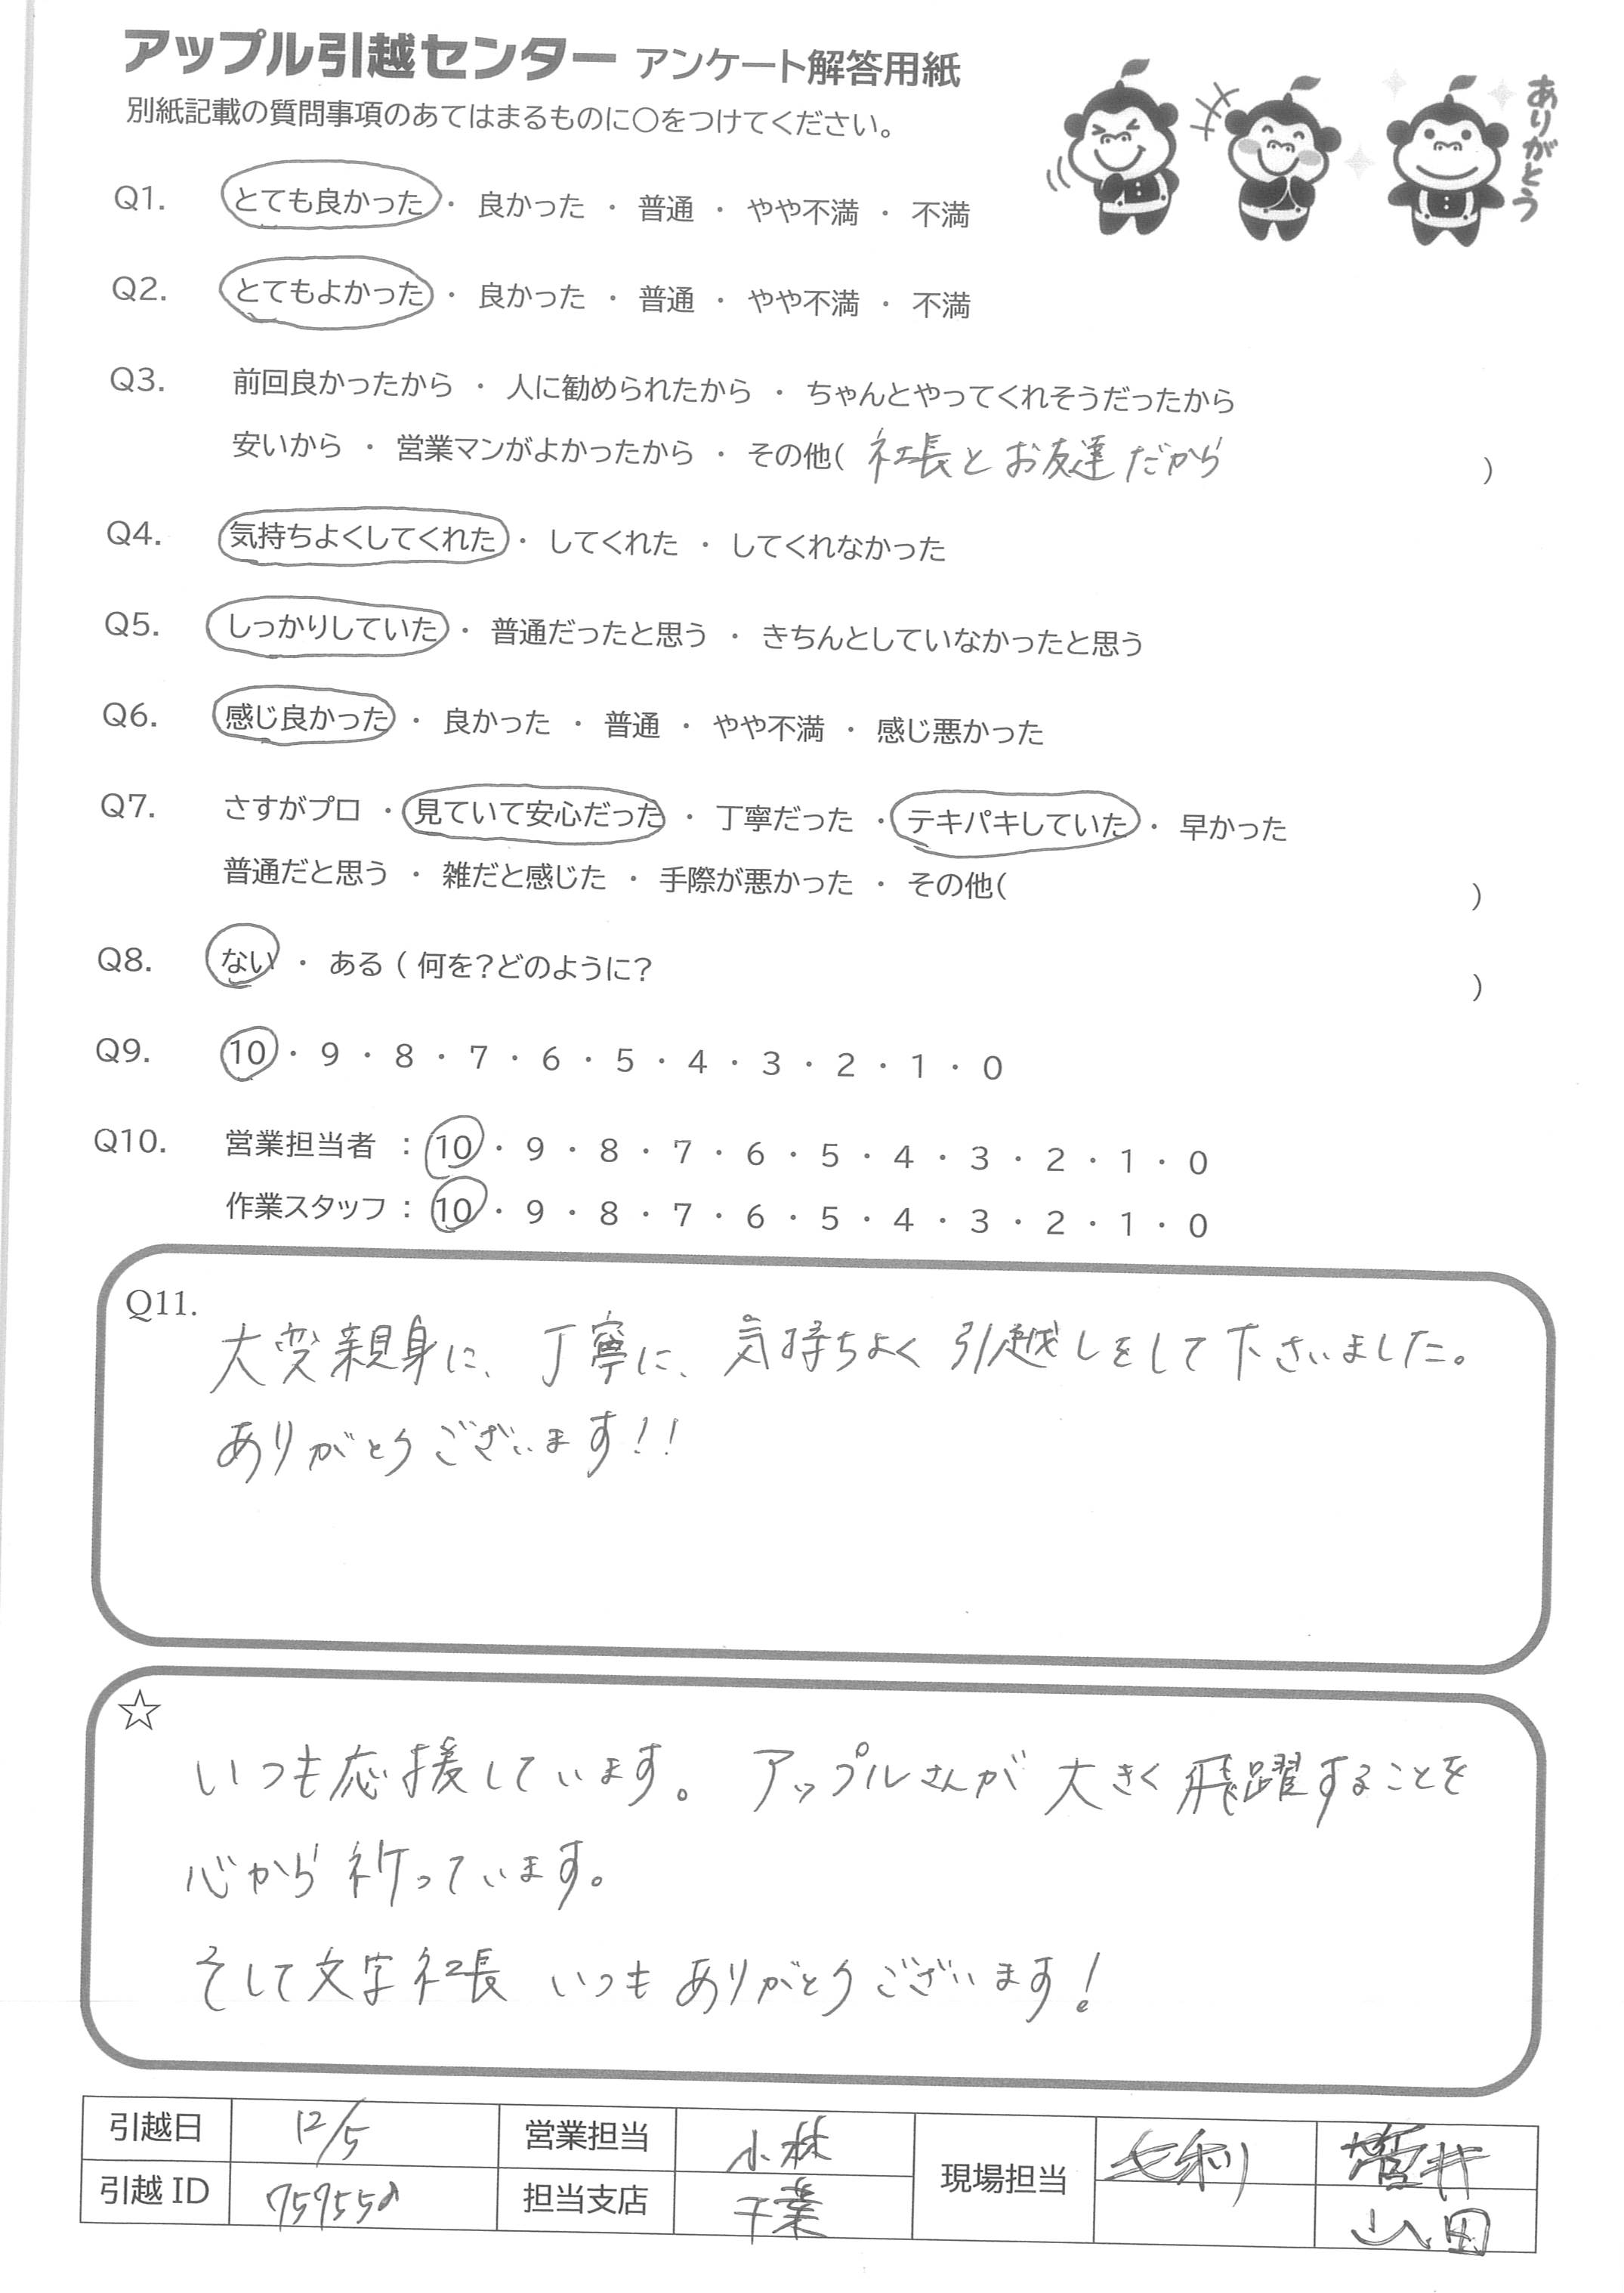 アップル引越センター アンケート解答用紙
別紙記載の質問事項のあてはまるものに○をつけてください。
ありがとう
Q1. とても良かった ・ 良かった ・ 普通 ・ やや不満 ・ 不満
Q2. とてもよかった ・ 良かった ・ 普通 ・ やや不満 ・ 不満
Q3. 前回良かったから ・ 人に勧められたから ・ ちゃんとやってくれそうだったから
安いから ・ 営業マンがよかったから ・ その他( 社長とお友達だから )
Q4. 気持ちよくしてくれた ・ してくれた ・ してくれなかった
Q5. しっかりしていた ・ 普通だったと思う ・ きちんとしていなかったと思う
Q6. 感じ良かった ・ 良かった ・ 普通 ・ やや不満 ・ 感じ悪かった
Q7. さすがプロ ・ 見ていて安心だった ・ 丁寧だった ・ テキパキしていた ・ 早かった
普通だと思う ・ 雑だと感じた ・ 手際が悪かった ・ その他( )
Q8. ない ・ ある ( 何を?どのように? )
Q9. 10 ・ 9 ・ 8 ・ 7 ・ 6 ・ 5 ・ 4 ・ 3 ・ 2 ・ 1 ・ 0
Q10. 営業担当者 : 10 ・ 9 ・ 8 ・ 7 ・ 6 ・ 5 ・ 4 ・ 3 ・ 2 ・ 1 ・ 0
作業スタッフ : 10 ・ 9 ・ 8 ・ 7 ・ 6 ・ 5 ・ 4 ・ 3 ・ 2 ・ 1 ・ 0
Q11.
大変親身に、丁寧に、気持ちよく引越しをして下さいました。
ありがとうございます!!
☆
いつも応援しています。 アップルさんが大きく飛躍することを
心から祈っています。
そして文字社長 いつもありがとうございます!
引越日 12/5 営業担当 小林 現場担当
引越 ID 担当支店 千葉 山田